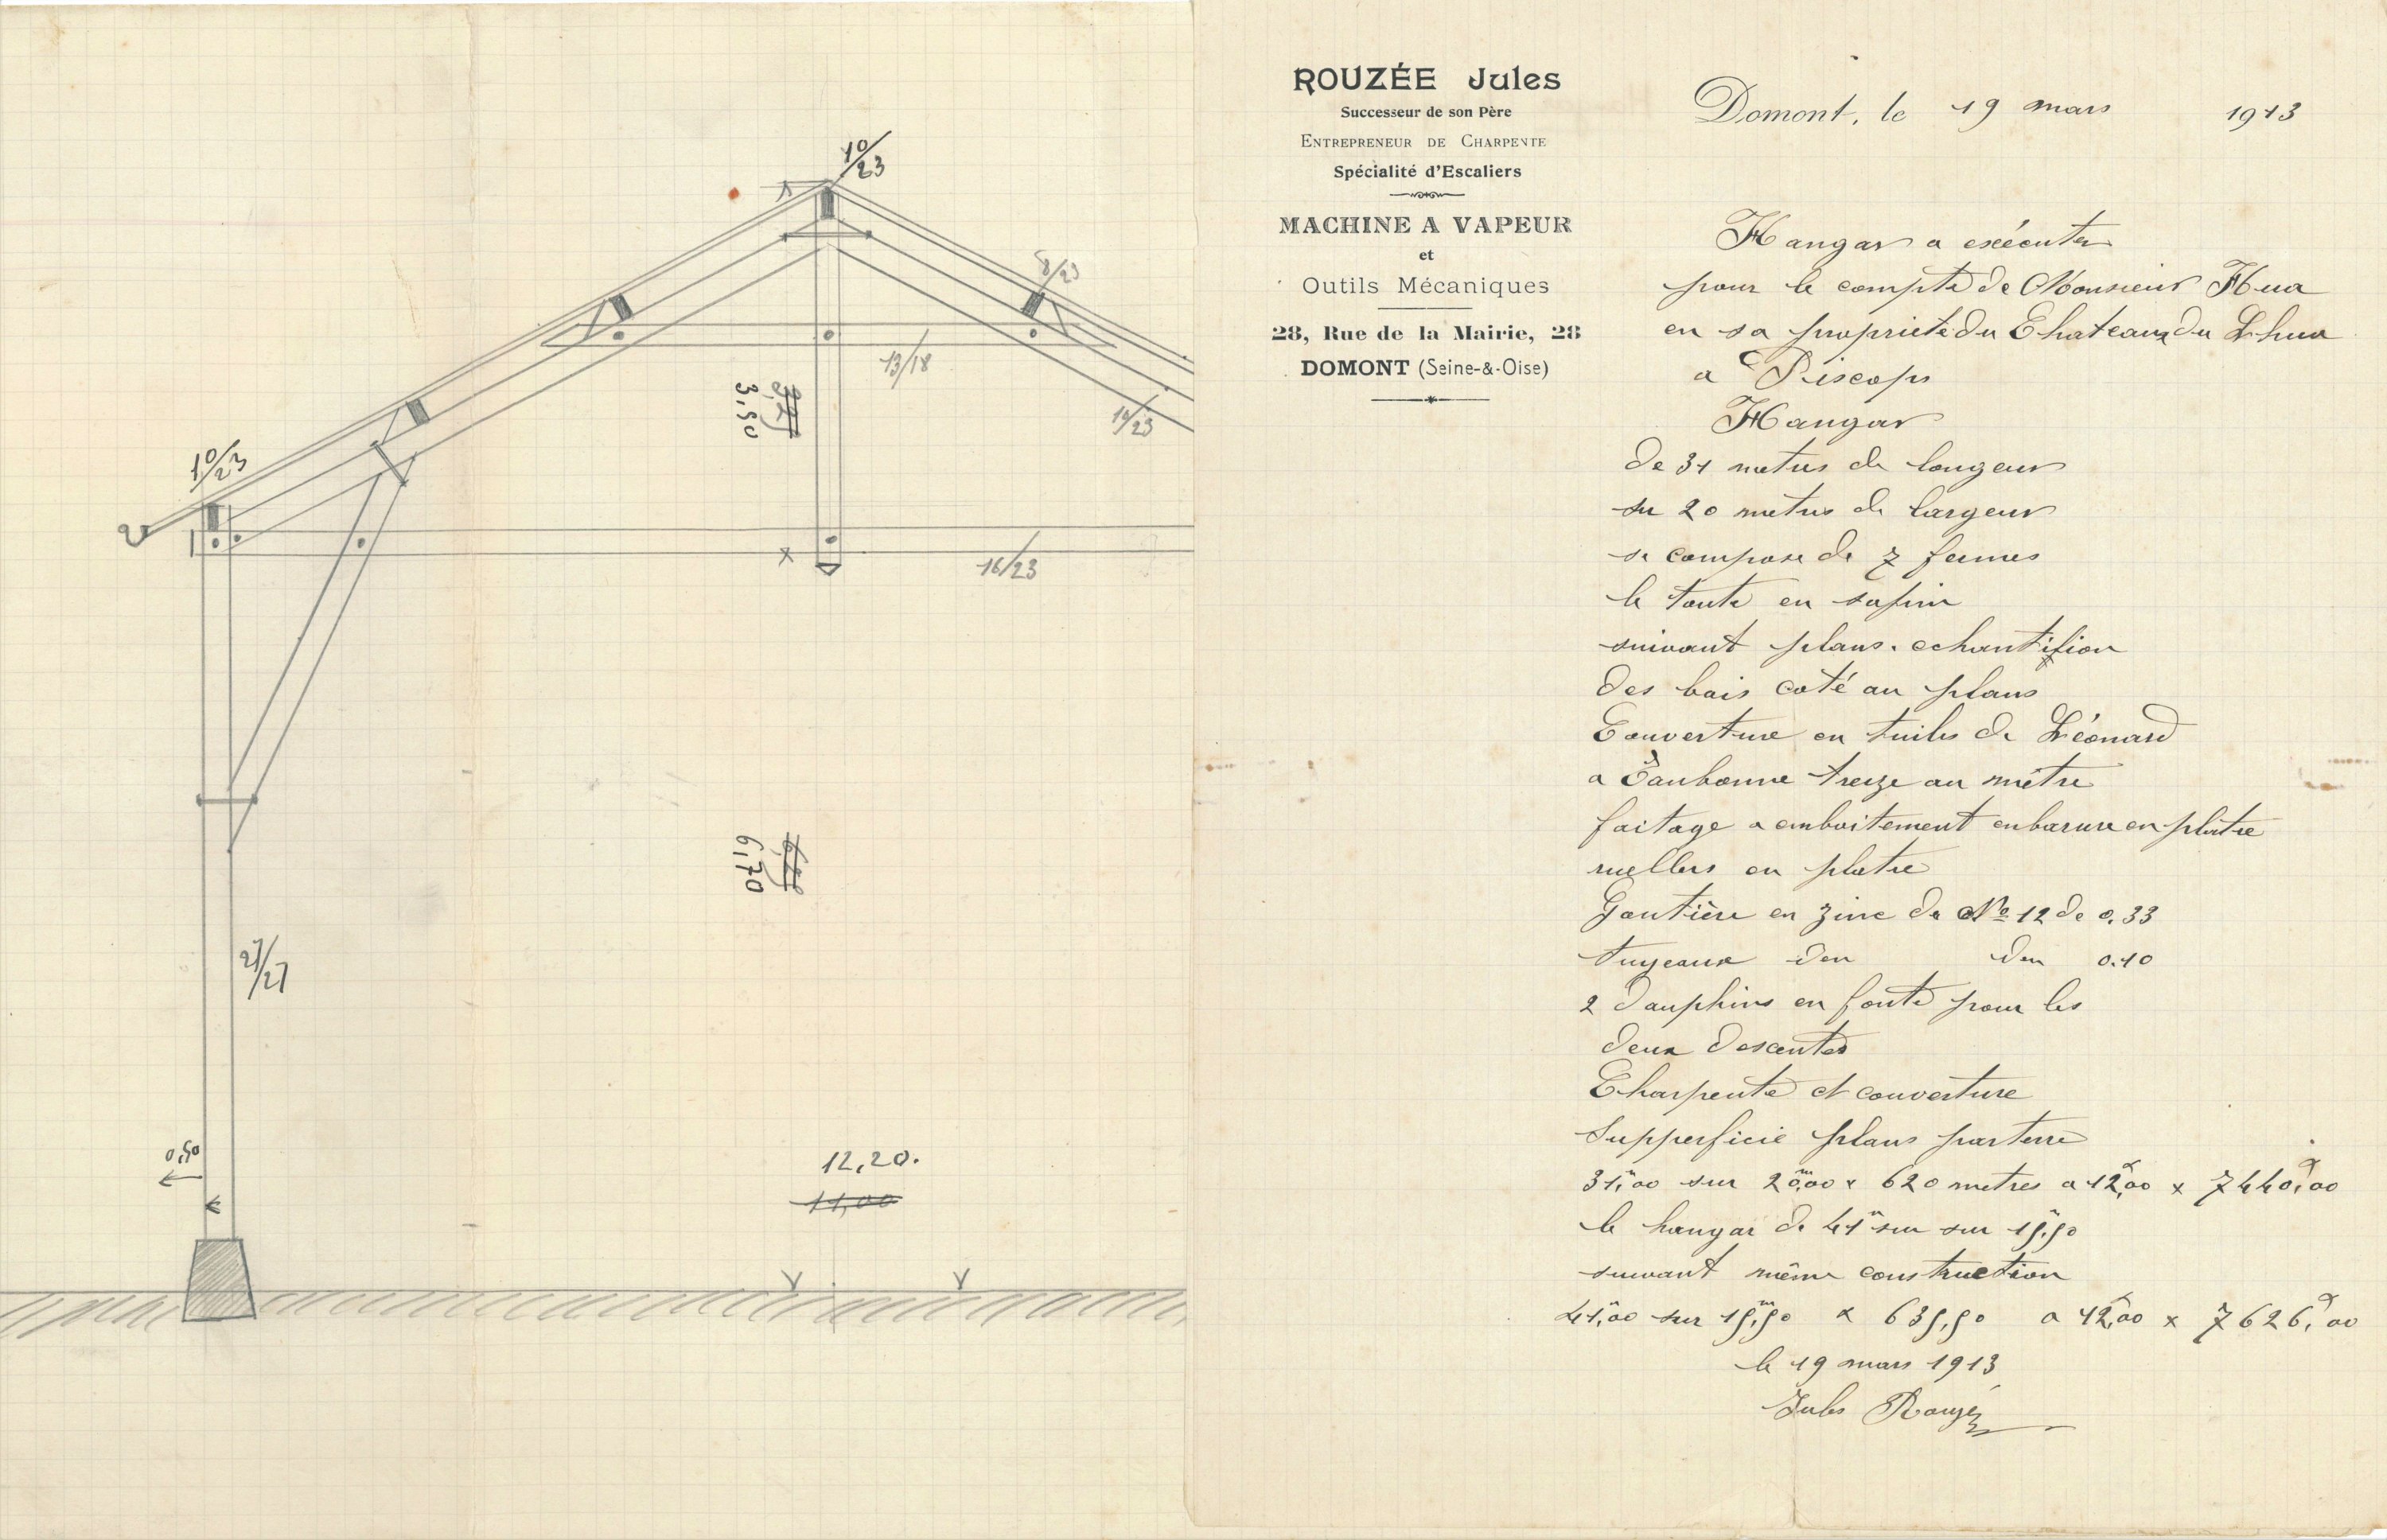 10/23
8/23
13/18
3,50
10/23
10/23
16/23
6,70
21/27
0,50
12,20.
11,00
ROUZÉE Jules
Successeur de son Père
ENTREPRENEUR DE CHARPENTE
Spécialité d'Escaliers
MACHINE A VAPEUR
et
Outils Mécaniques
28, Rue de la Mairie, 28
DOMONT (Seine-&-Oise)
Domont, le 19 mars 1913
Hangar a exécuter
pour le compte de Monsieur Hua
en sa propriete du Chateau du Lhua
a Piscops
Hangar
de 31 metres de longeur
sur 20 metres de largeur
se compose de 7 fermes
le toute en sapin
suivant plans. echantifion
des bois coté au plans
Couverture en tuiles de Léonard
a Eaubonne treize au mètre
faitage a emboitement enbarure en platre
ruellers en platre
Goutière en zinc de No 12 de 0.33
tuyeaux den den 0.10
2 Dauphins en fonte pour les
deux descentes
Charpente et couverture
Supperficie plans parterre
31,m00 sur 20,m00 x 620 metres a 12,f00 x 7440,f00
le hangar de 41m sur 15,m50
suivant même construction
41,m00 sur 15,m50 x 635,50 a 12,f00 x 7626,f00
le 19 mars 1913
Jules Rouzée